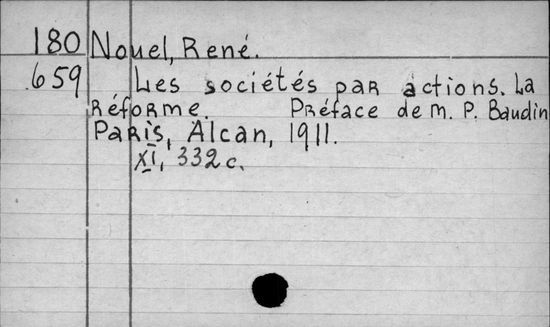 180 Nouel, René.
659 Les sociétés par actions. La
Réforme. Préface de M. P. Baudin
Paris, Alcan, 1911.
XI, 332 c.